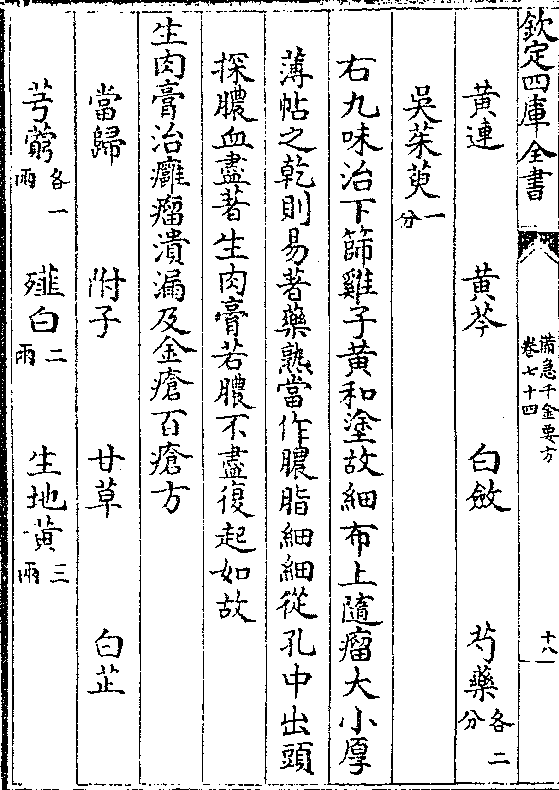 欽定四庫全書
備急千金要方
卷七十四
十八
黃連 黃芩 白斂 芍藥各二分
吳茱萸一分
右九味治下篩雞子黃和塗故細布上隨瘤大小厚
薄帖之乾則易著藥熟當作膿脂細細從孔中出頭
探膿血盡著生肉膏若膿不盡復起如故
生肉膏治癰瘤潰漏及金瘡百瘡方
當歸 附子 甘草 白芷
芎藭各一兩 薤白二兩 生地黃三兩